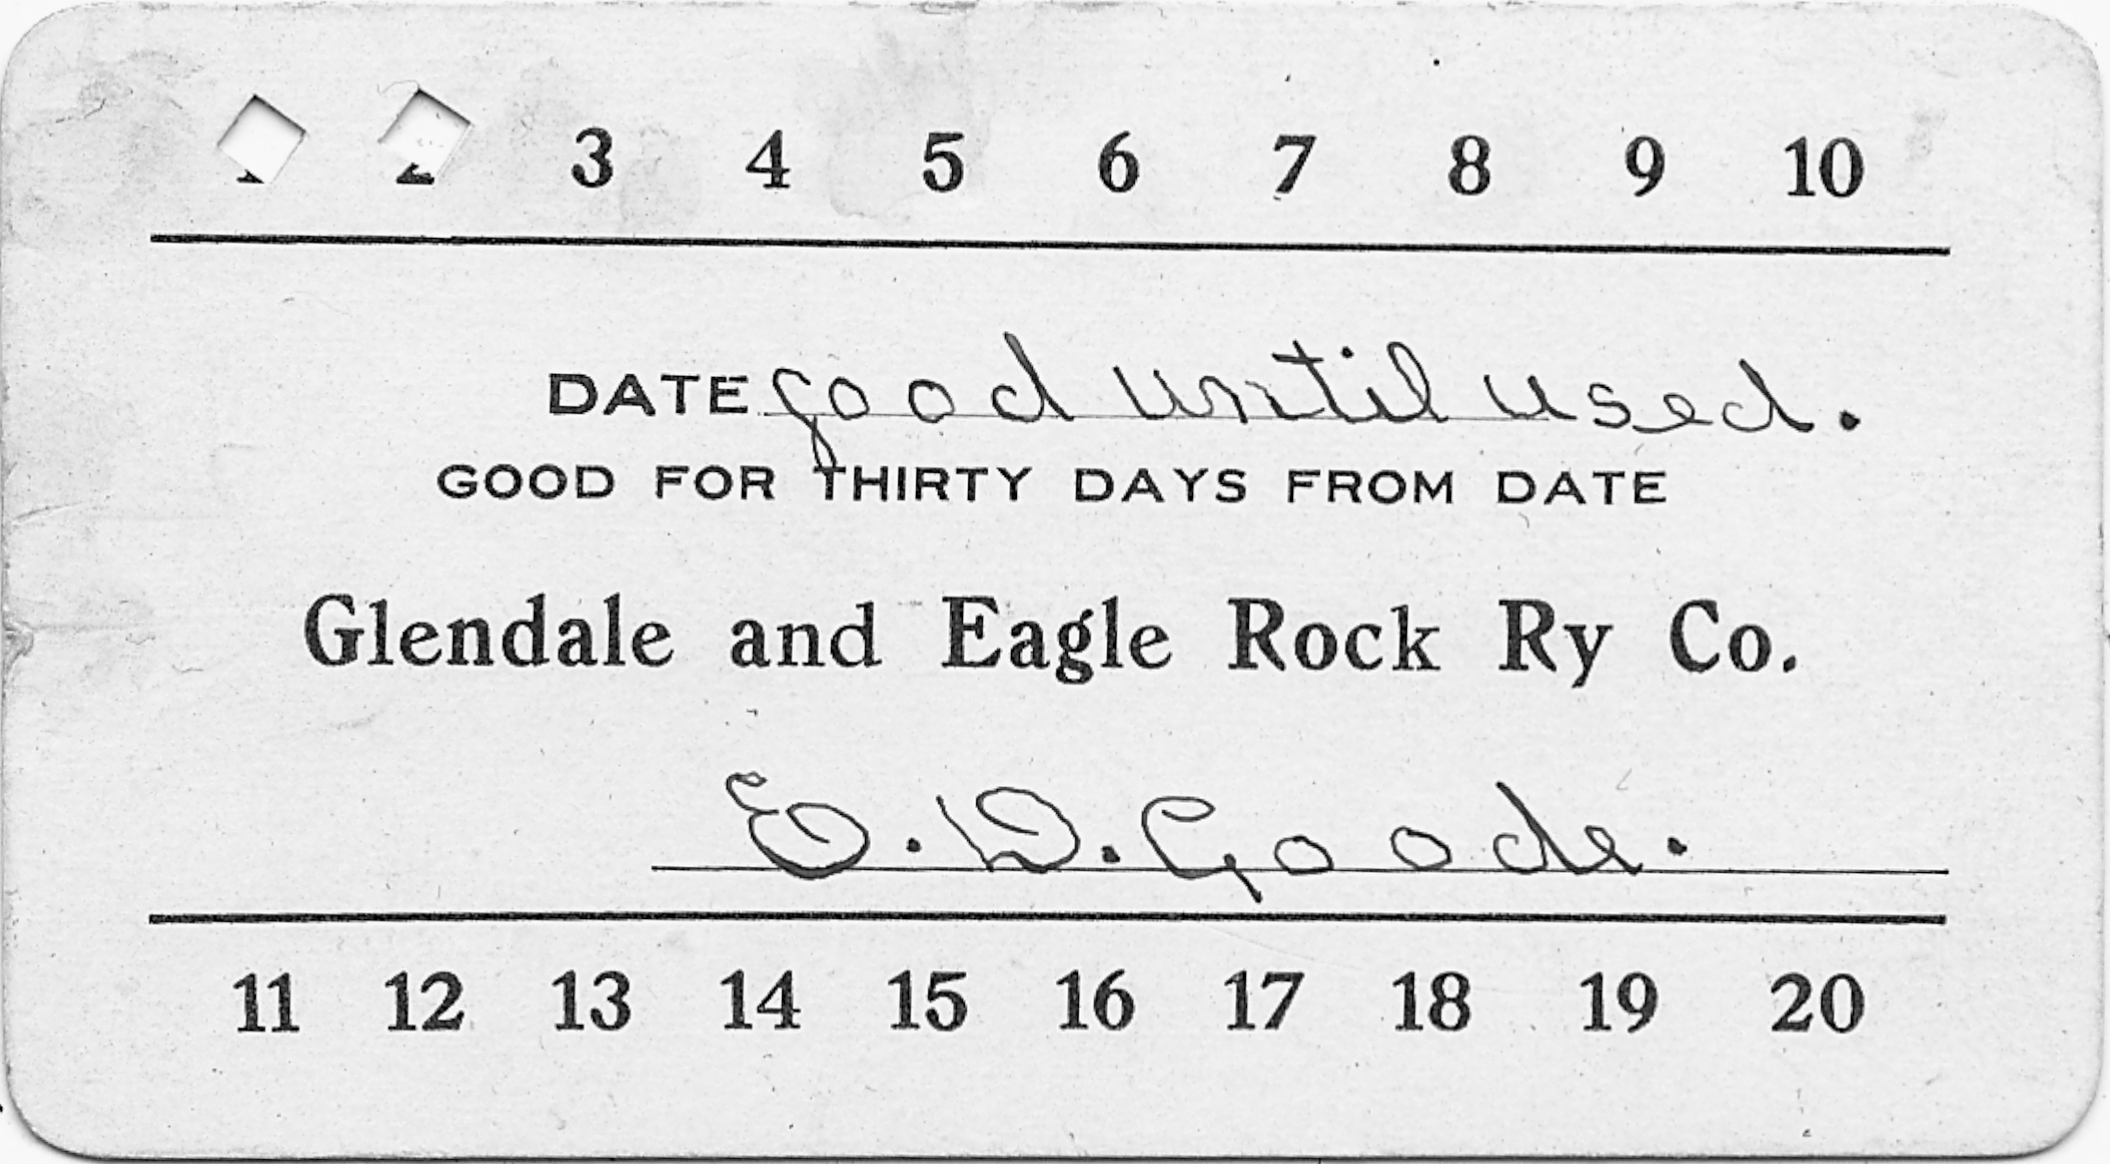 1 2 3 4 5 6 7 8 9 10
DATE good until used.
GOOD FOR THIRTY DAYS FROM DATE
Glendale and Eagle Rock Ry Co.
E. D. Goode.
11 12 13 14 15 16 17 18 19 20